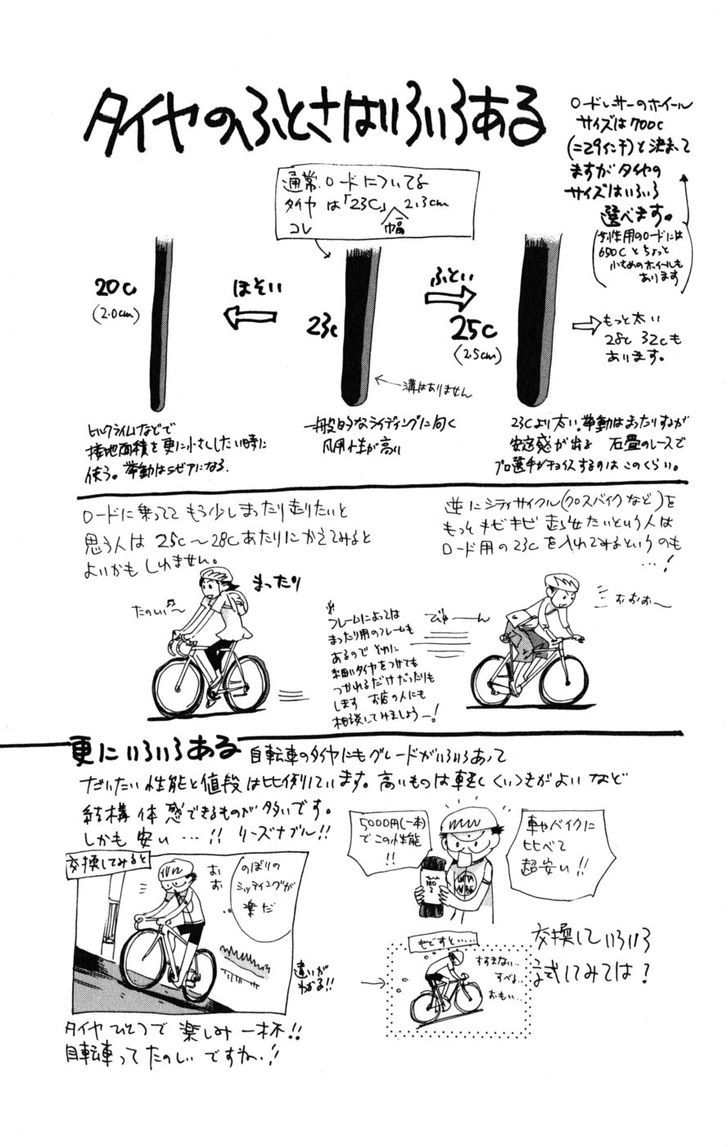 タイヤのふとさはいろいろある
ロードレサーのホイール
サイズは700c
(=29インチ)と決まって
ますがタイヤの
サイズはいろいろ
選べます。
女性用のロードには
650Cとちょっと
小さめのホイールも
あります
通常ロードについてる
タイヤは「23C」2.3cm
コレ 幅
20c
(2.0cm)
ほそい
23c
ふとい
25c
(2.5cm)
もっと太い
28c 32cも
あります。
溝はありません
ヒルクライムなどで
接地面積を更に小さくしたい時に
使う。挙動はシビアになる.
一般的なライディングに向く
汎用性が高い
23cより太い.挙動はまったりするが
安定感が出る 石畳のレースで
プロ選手がチョイスするのはこのくらい。
ロードに乗ってて もう少しまったり走りたいと
思う人は 25c〜28cあたりにかえてみると
よいかもしれません。
逆にシティサイクル(クロスバイクなど)を
もっとキビキビ走らせたいという人は
ロード用の23cを入れてみるというのも
…!
まったり
たのしい〜♬
※
フレームによっては
まったり用のフレームも
あるので とくに
細いタイヤをつけても
つかれるだけだったりも
します お店の人にも
相談してみましょうー!
びゅーん
おおお〜
更にいろいろある 自転車のタイヤにもグレードがいろいろあって
だいたい性能と値段は比例しています。高いものは軽くくいつきがよいなど
結構体感できるものが多いです。
しかも安い…!! リーズナブル!!
交換してみると
おお
のぼりの
シッティングが
楽だ
違いが
わかる!!
5000円(一本)
でこの性能
!!
車やバイクに
比べて
超安い!!
やせすと……
すすまない…
すべる…
おもい…
交換していろいろ
試してみては?
タイヤひとつで 楽しみ一杯!!
自転車ってたのしいですねぃ!